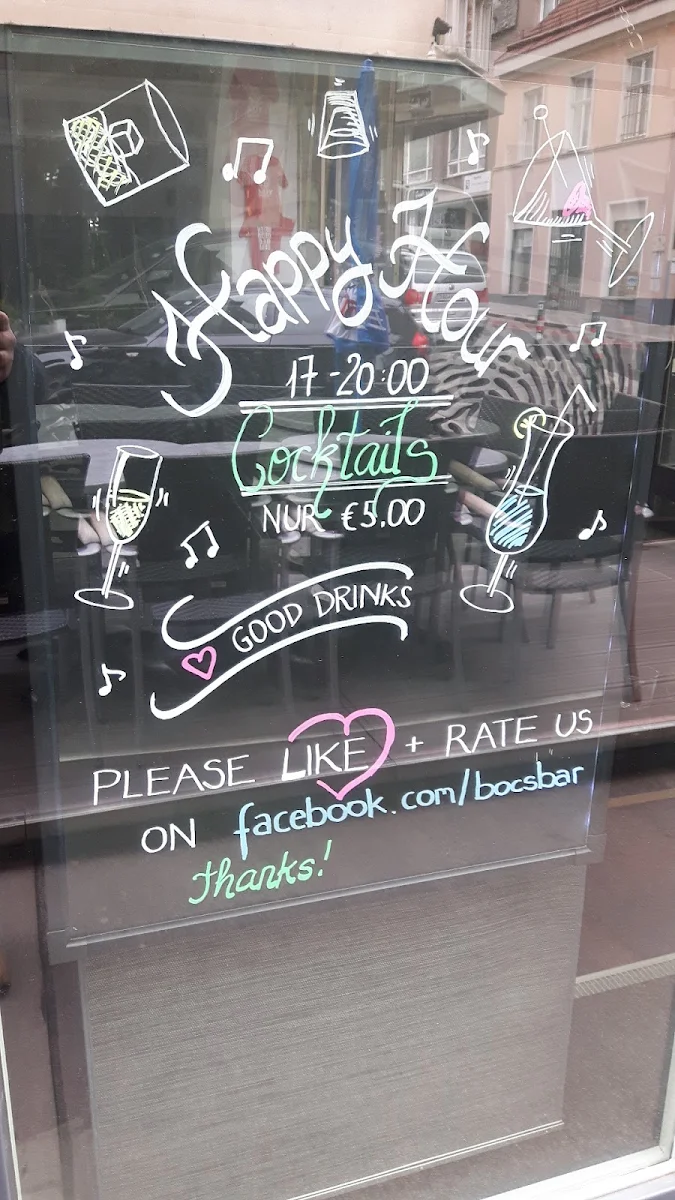 Happy Hour
17-20:00
Cocktails
NUR €5,00
GOOD DRINKS
PLEASE LIKE + RATE US
ON facebook.com/bocsbar
thanks!